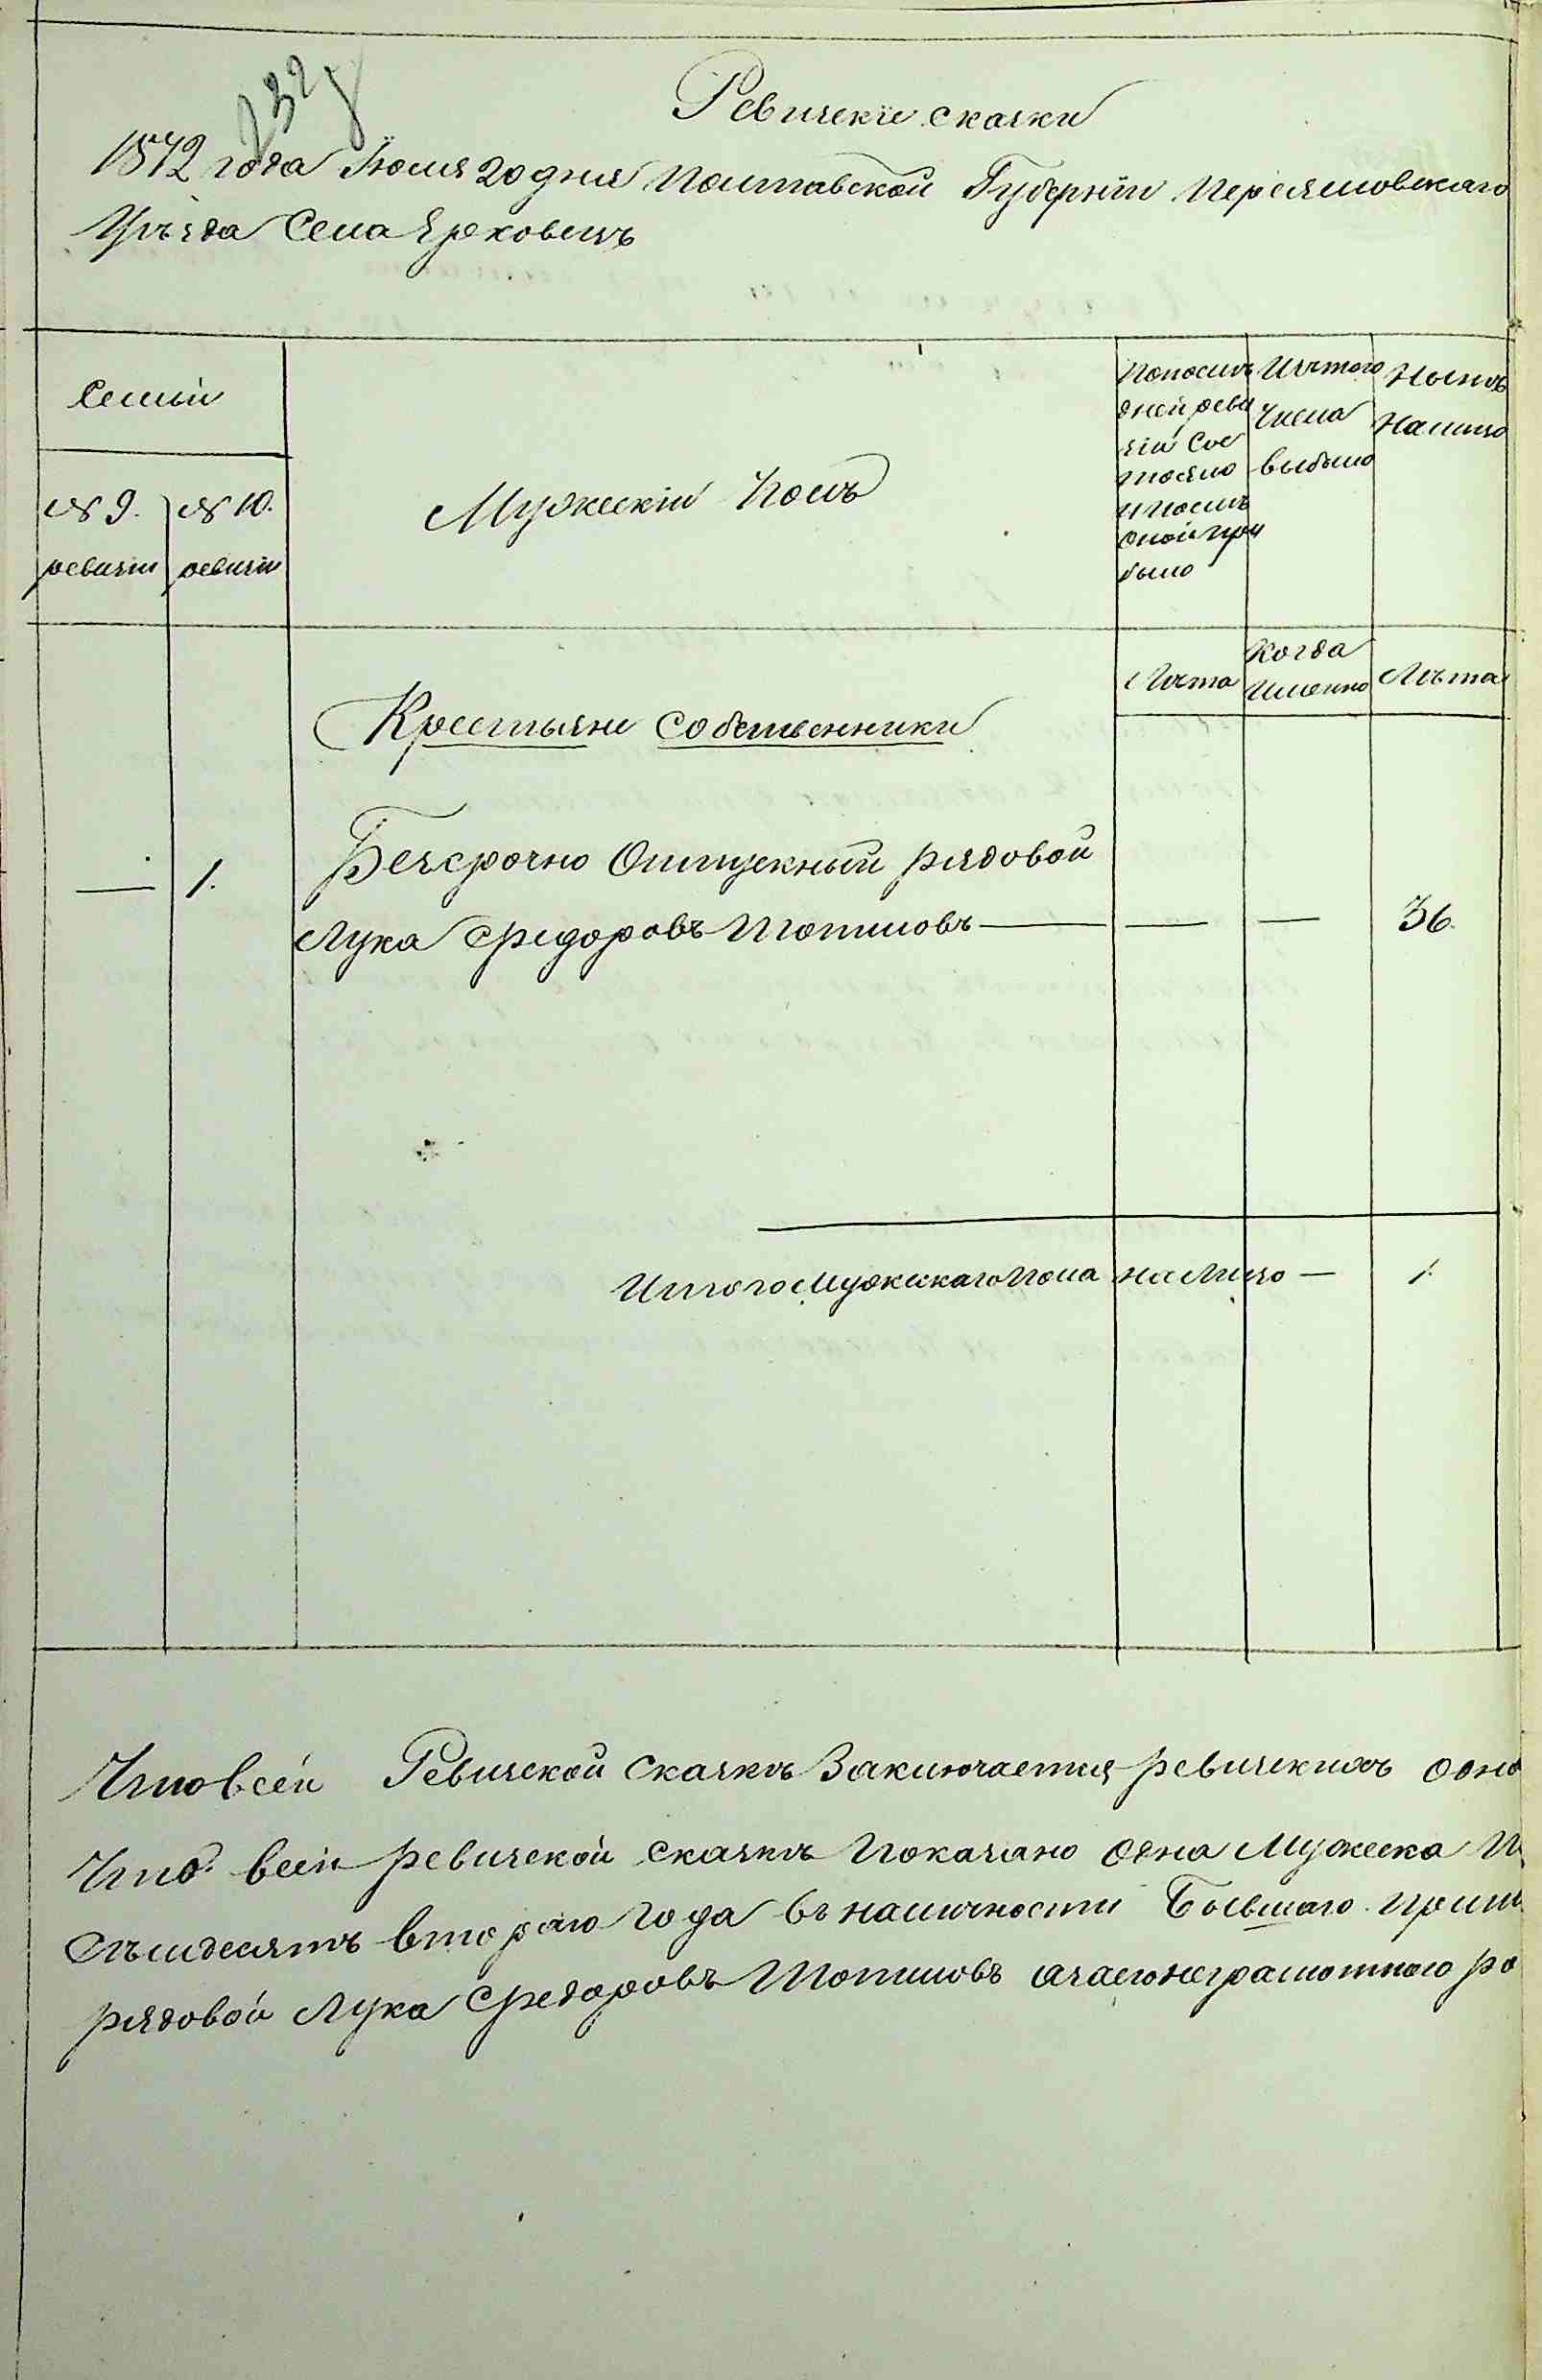 232
Ревизскіе сказки
1872 года Іюля 20 дня Полтавской Губерніи Переяславскаго
Уѣзда Села Ерковецъ
Семьи
№ 9. ревизіи
№ 10. ревизіи
Мужескій Полъ
По послѣ
дней реви
зіи сос
тояло
и послѣ
оной при
было
Изъ того
числа
выбыло
Нынѣ
На лицо
Лѣта
Когда
именно
Лѣта
Крестьяне Собственники
— 1. Безсрочно Отпускный рядовой
Лука Федоровъ Шотиловъ — — — 36.
Итого Мужескаго пола на лицо — 1.
Что в сей Ревизской Сказкѣ Заключается ревизскихъ одно
Что в сей ревизской сказкѣ показано одна Мужеска п
семьдесятъ втораго года въ наличности Бывшаго
рядовой Лука Федоровъ Шотиловъ а за его неграмотнаго ро